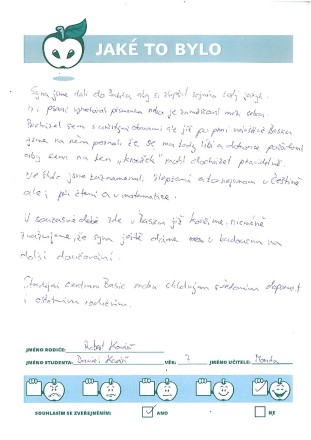 JAKÉ TO BYLO
Syna jsme dali do Basicu aby si zlepšil zejména český jazyk.
V psaní vynechával písmenka nebo je zaměňoval mezi sebou.
Docházel sem s určitými obavami ale již po první návštěvě Basicu
jsme na něm poznali, že se mu tady líbí a dokonce
aby sem na ten "kroužek" mohl docházet pravidelně.
Ve škole jsme zaznamenali zlepšení a to nejenom v Češtině
ale i při čtení a v matematice.
V současné době zde v Basicu již končíme, nicméně
zvažujeme, že syna ještě dáme v budoucnu na
další doučování.
Studijní centrum Basic mohu s klidným svědomím doporučit
i ostatním rodičům.
JMÉNO RODIČE: Robert
JMÉNO STUDENTA: Daniel VĚK: 7 JMÉNO UČITELE: Monika
SOUHLASÍM SE ZVEŘEJNĚNÍM: ANO NE